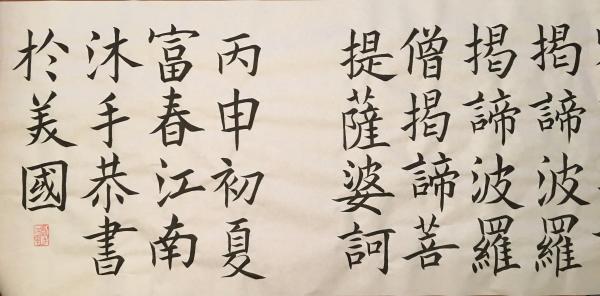 揭諦波羅
揭諦波羅
僧揭諦菩
提薩婆訶
丙申初夏
富春江南
沐手恭書
於美國